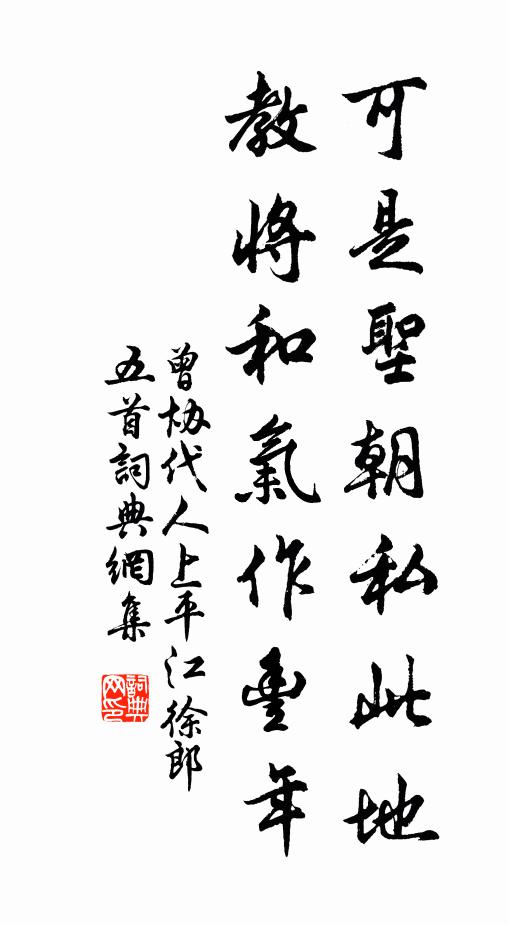 可是聖朝私此地
教將和氣作豐年
曾協代人上平江徐郎
五首詞典網集
詞典
网印